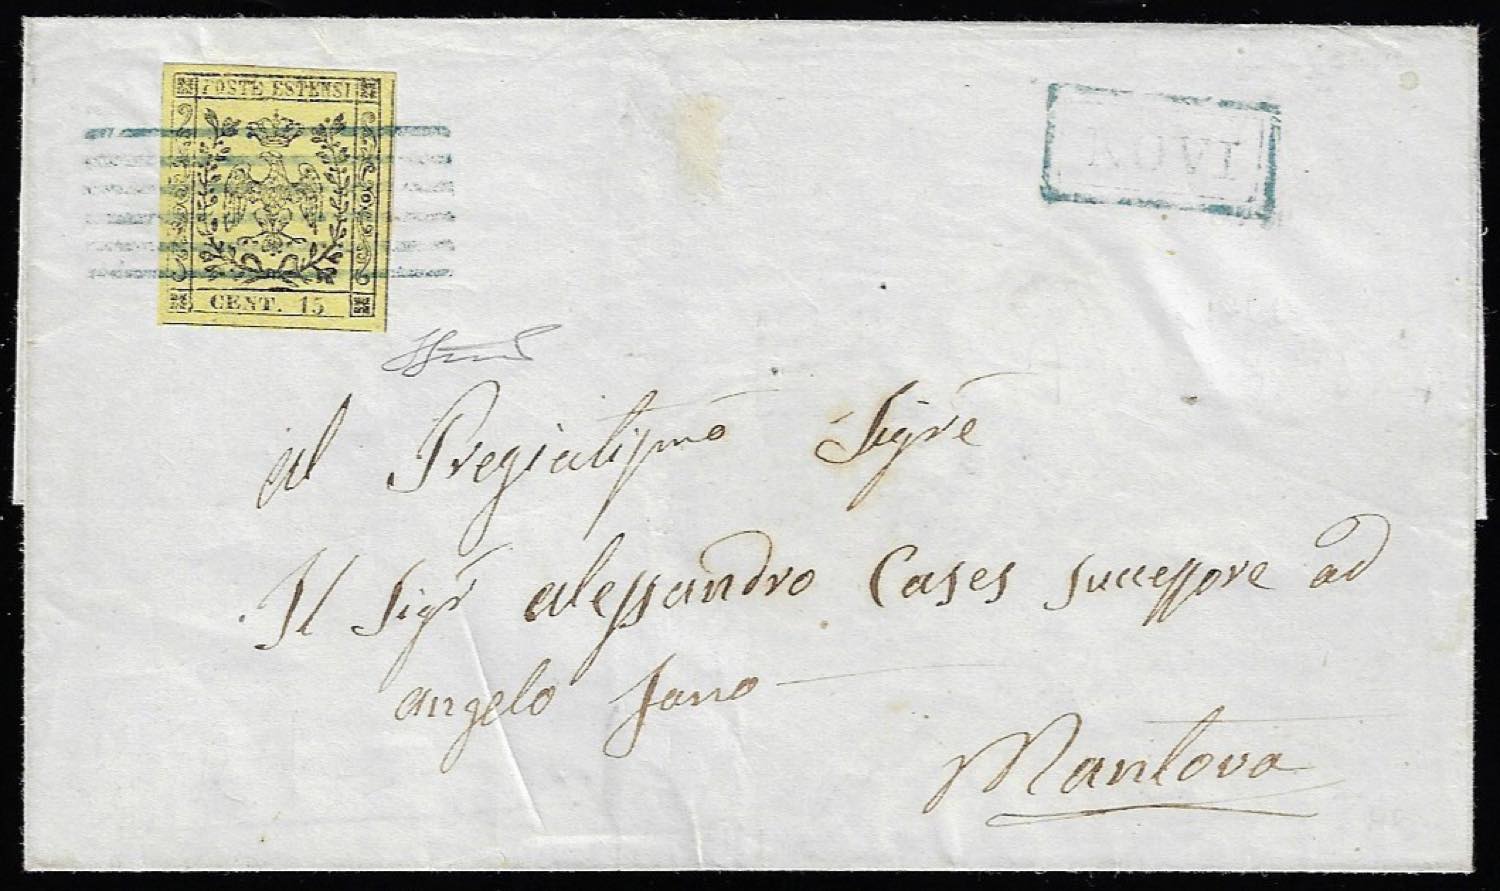 POSTE ESTENSI
CENT. 15
NOVI
al Pregiatissmo Sigre
Il Sigr alessandro Cases successore ad
angelo
Mantova